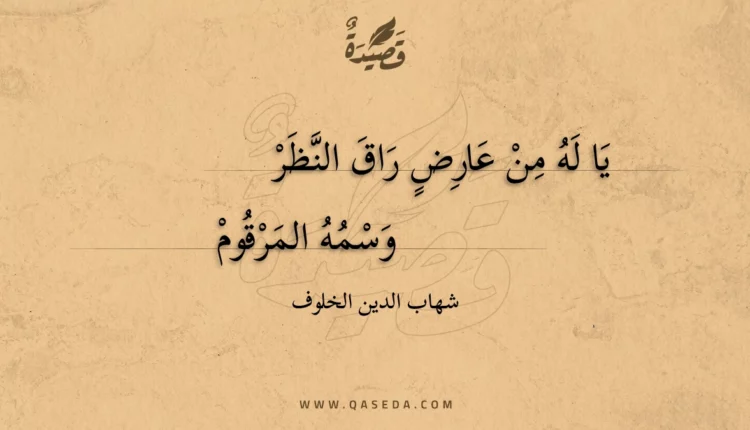 قَصِيْدَةٌ
يَا لَهُ مِنْ عَارِضٍ رَاقَ النَّظَرْ
وَسْمُهُ المَرْقُومْ
شهاب الدين الخلوف
WWW.QASEDA.COM